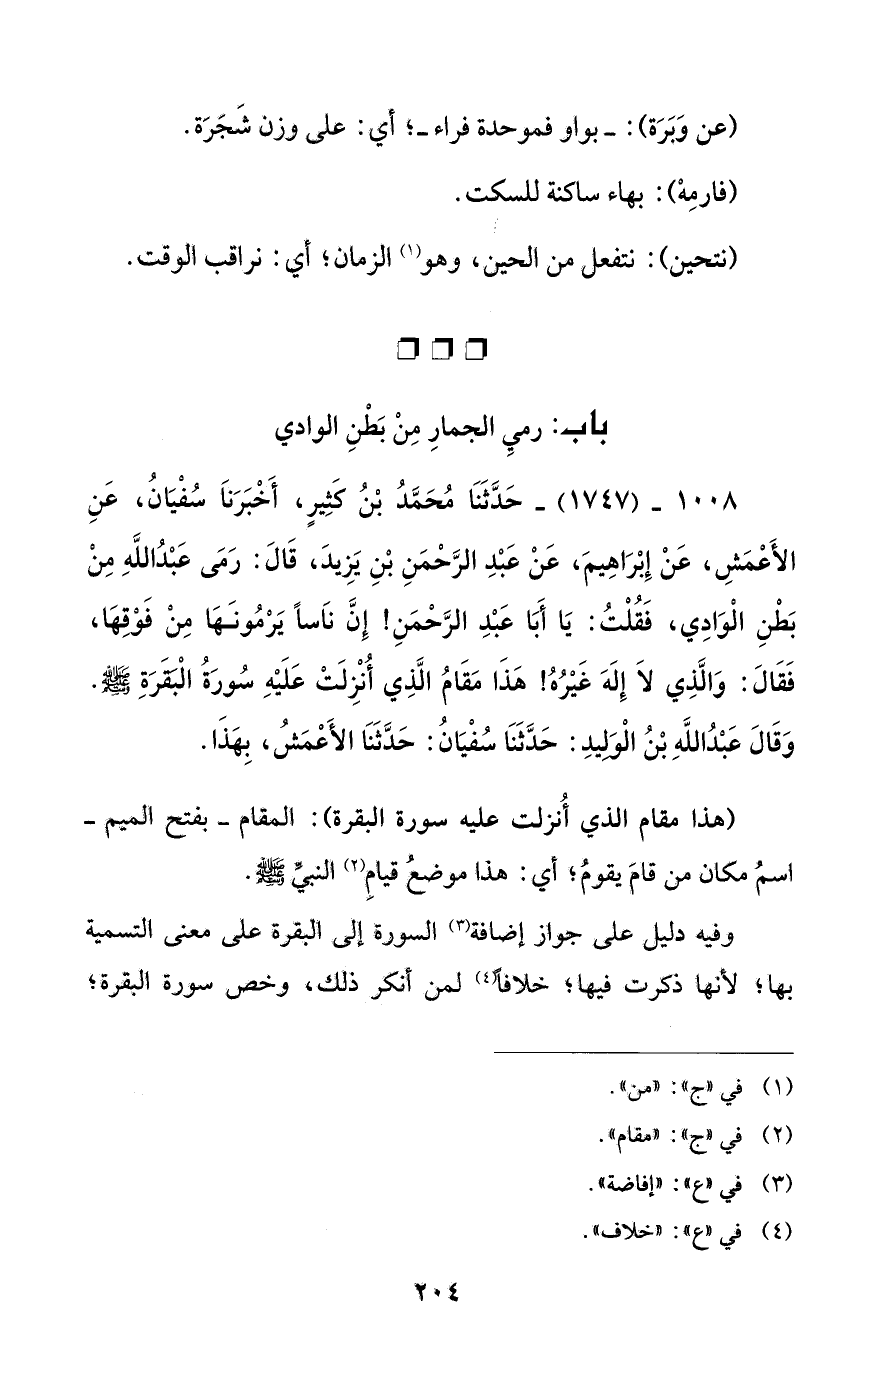 (عن وَبَرَة): ـ بواو فموحدة فراء ـ؛ أي: على وزن شَجَرَة.
(فارمِهْ): بهاء ساكنة للسكت.
(نتحين): نتفعل من الحين، وهو(١) الزمان؛ أي: نراقب الوقت.
باب: رميِ الجمارِ مِنْ بَطْنِ الوادي
١٠٠٨ ـ (١٧٤٧) ـ حَدَّثَنَا مُحَمَّدُ بْنُ كَثِيرٍ، أَخْبَرَنَا سُفْيَانُ، عَنِ
الأَعْمَشِ، عَنْ إِبْرَاهِيمَ، عَنْ عَبْدِ الرَّحْمَنِ بْنِ يَزِيدَ، قَالَ: رَمَى عَبْدُاللَّهِ مِنْ
بَطْنِ الْوَادِي، فَقُلْتُ: يَا أَبَا عَبْدِ الرَّحْمَنِ! إِنَّ نَاساً يَرْمُونَهَا مِنْ فَوْقِهَا،
فَقَالَ: وَالَّذِي لاَ إِلَهَ غَيْرُهُ! هَذَا مَقَامُ الَّذِي أُنْزِلَتْ عَلَيْهِ سُورَةُ الْبَقَرَةِ ﷺ.
وَقَالَ عَبْدُاللَّهِ بْنُ الْوَلِيدِ: حَدَّثَنَا سُفْيَانُ: حَدَّثَنَا الأَعْمَشُ، بِهَذَا.
(هذا مقام الذي أُنزلت عليه سورة البقرة): المقام ـ بفتح الميم ـ
اسمُ مكان من قامَ يقومُ؛ أي: هذا موضعُ قيامِ(٢) النبيِّ ﷺ.
وفيه دليل على جواز إضافة(٣) السورة إلى البقرة على معنى التسمية
بها؛ لأنها ذكرت فيها؛ خلافاً(٤) لمن أنكر ذلك، وخص سورة البقرة؛
(١) في «ج»: «من».
(٢) في «ج»: «مقام».
(٣) في «ع»: «إفاضة».
(٤) في «ع»: «خلاف».
٢٠٤